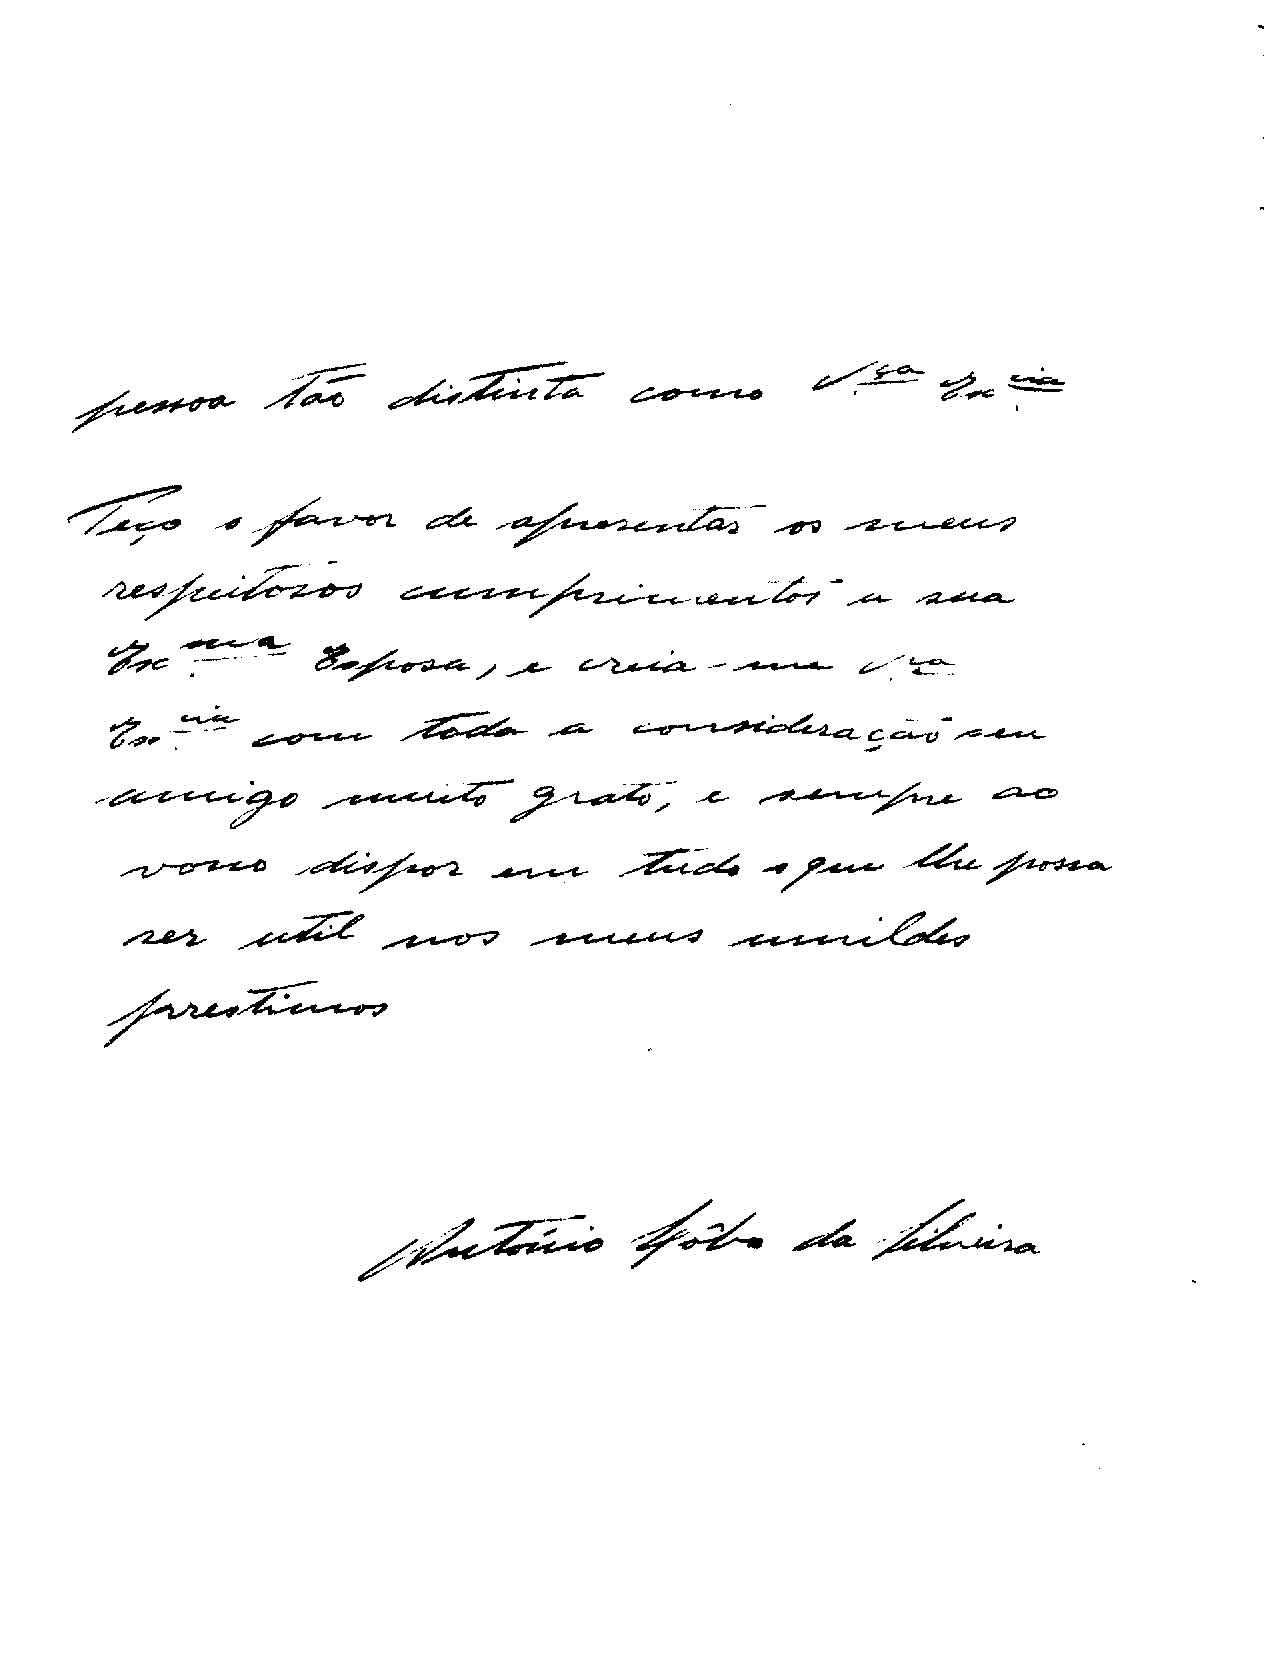 pessoa tão distinta como V.sa Ex.cia
Peço o favor de apresentar os meus
respeitosos cumprimentos a sua
Ex.ma Esposa, e creia-me V.ra
Ex.cia com toda a consideração seu
amigo muito grato, e sempre ao
vosso dispor em tudo o que lhe possa
ser util nos meus umildes
prestimos
António da Silveira